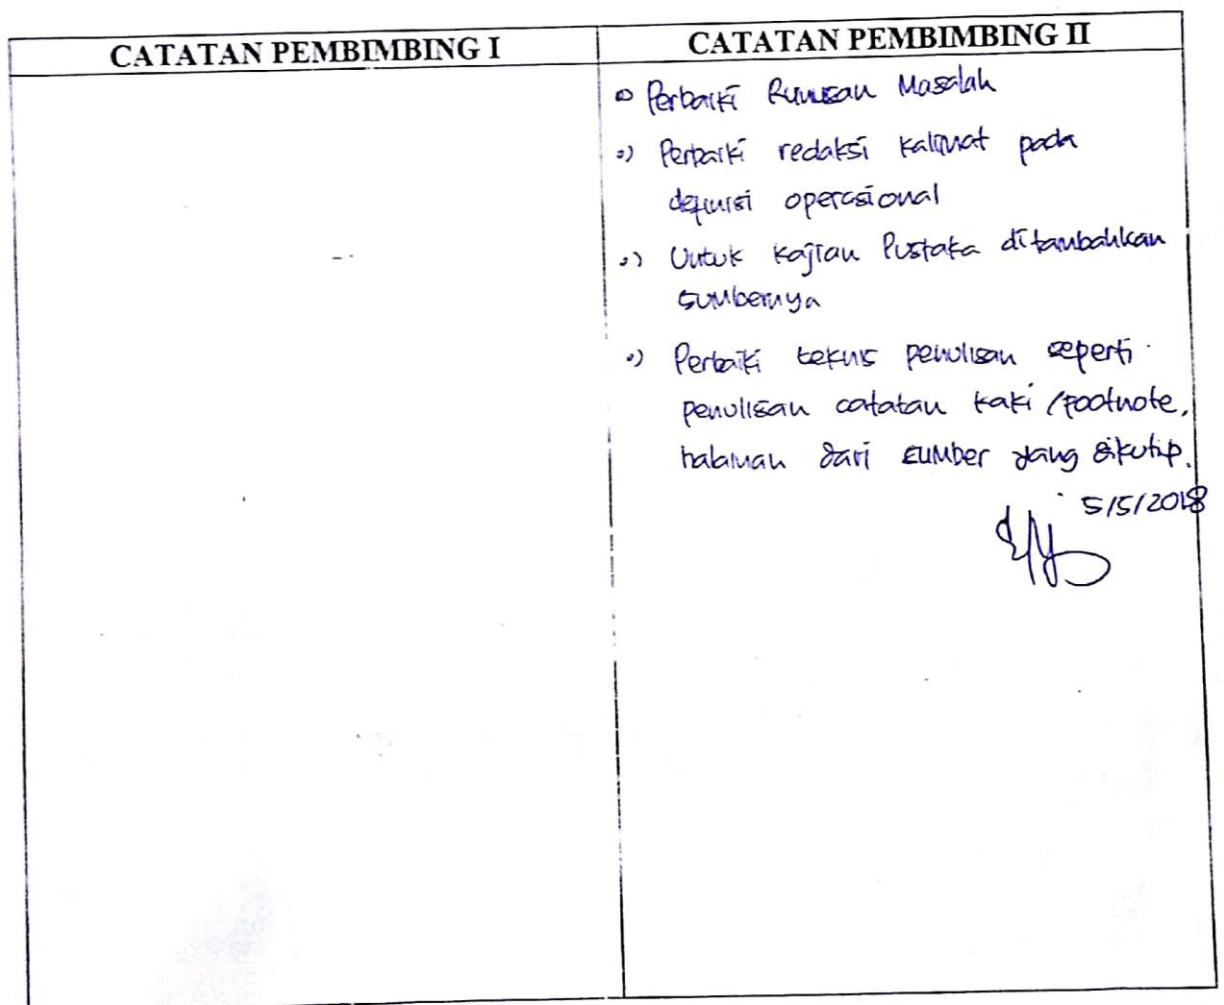 CATATAN PEMBIMBING I
CATATAN PEMBIMBING II
Perbaiki Rumusan Masalah
Perbaiki redaksi kalimat pada
definisi operasional
Untuk Kajian Pustaka ditambahkan
sumbernya
Perbaiki teknis penulisan seperti
penulisan catatan kaki /footnote,
halaman dari sumber yang dikutip.
5/5/2018